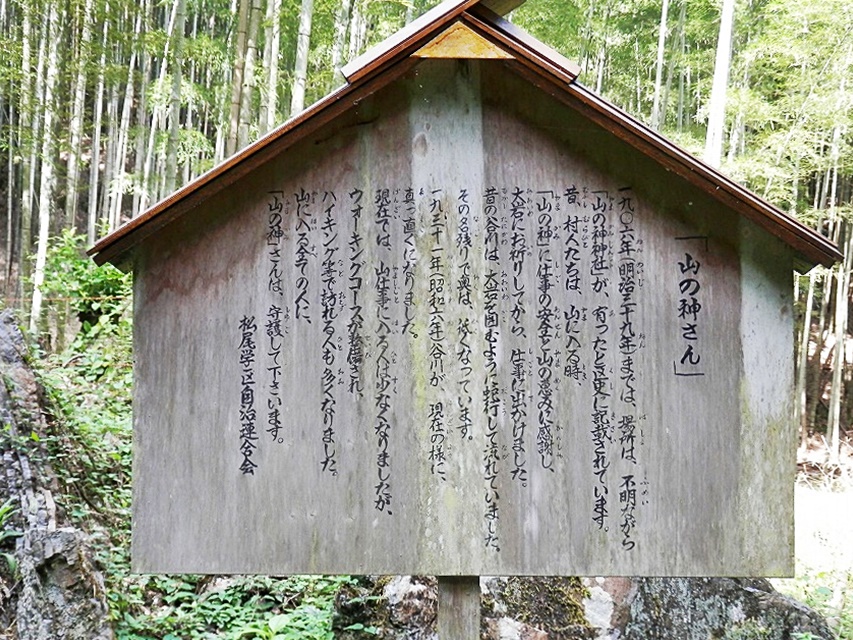 「山の神さん」
一九〇六年(明治三十九年)までは、場所は、不明ながら
「山の神神社」が、有ったと歴史に記載されています。
昔、村人たちは、山に入る時、
「山の神」に仕事の安全と山の恵みに感謝し、
大岩にお祈りしてから、仕事に出かけました。
昔の谷川は、大岩を囲むように蛇行して流れていました。
その名残りで奥は、深くなっています。
一九三十一年(昭和六年)谷川が、現在の様に、
真っ直ぐになりました。
現在では、山仕事に入る人は少なくなりましたが、
ウォーキングコースが整備され、
ハイキング等で訪れる人も多くなりました。
山に入る全ての人に、
「山の神」さんは、守護して下さいます。
松尾学区自治連合会